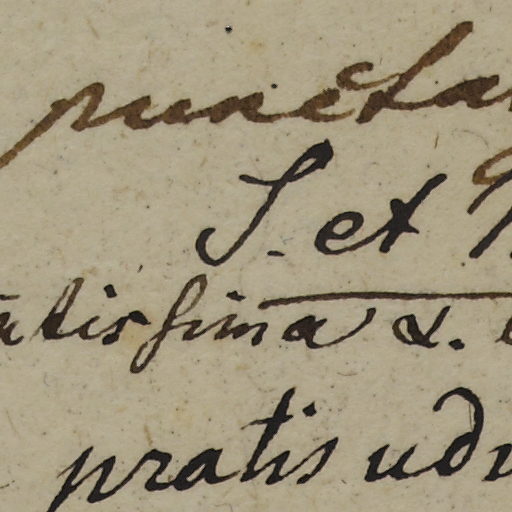 puncta
S. et
tissima &.
pratis ud